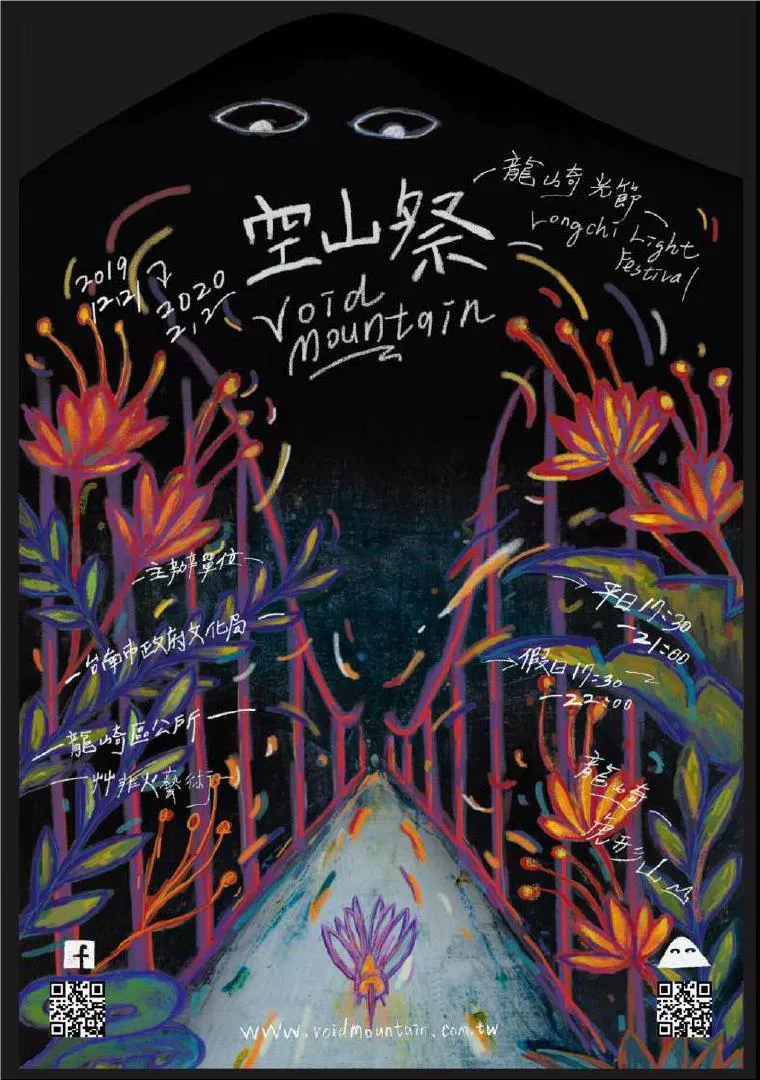 龍崎光節
Longchi Light
Festival
空山祭
Void
Mountain
2019
12.21
2020
2.2
主辦單位
台南市政府文化局
龍崎區公所
艸非火藝術
平日17:30
21:00
假日17:30
22:00
龍崎
虎形山
f
www.voidmountain.com.tw